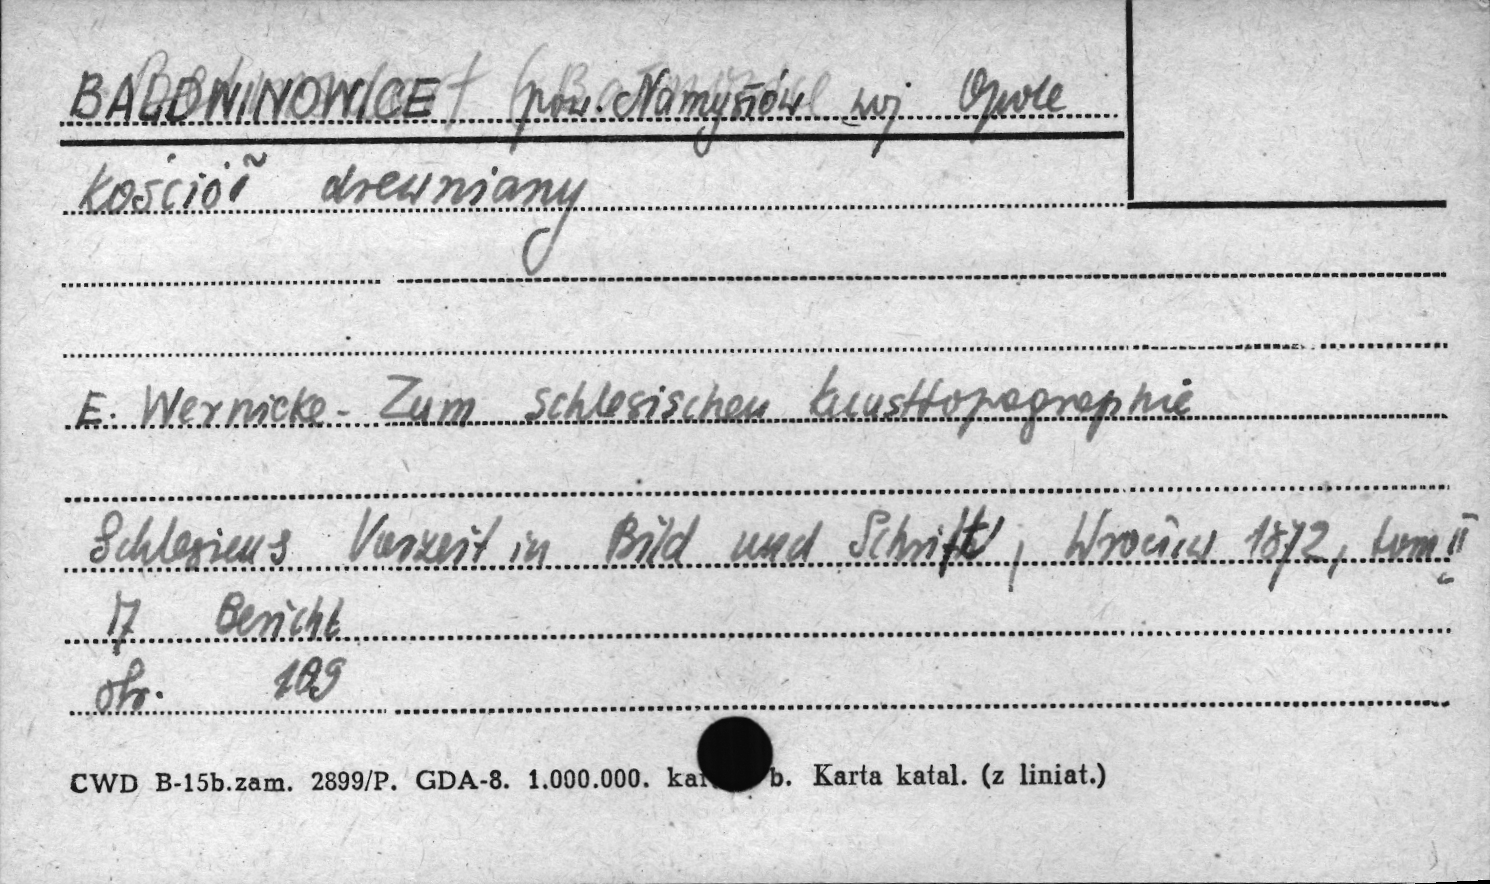 BALDWINOWICE pow. Namysłów woj Opole
Kościół drewniany
E. Wernicke - Zum schlesischen Kunsttopographie
Schlesiens Vorzeit in Bild und Schrift, Wrocław 1872, tom II
17 Bericht
str. 109
CWD B-15b.zam. 2899/P. GDA-8. 1.000.000. b. Karta katal. (z liniat.)